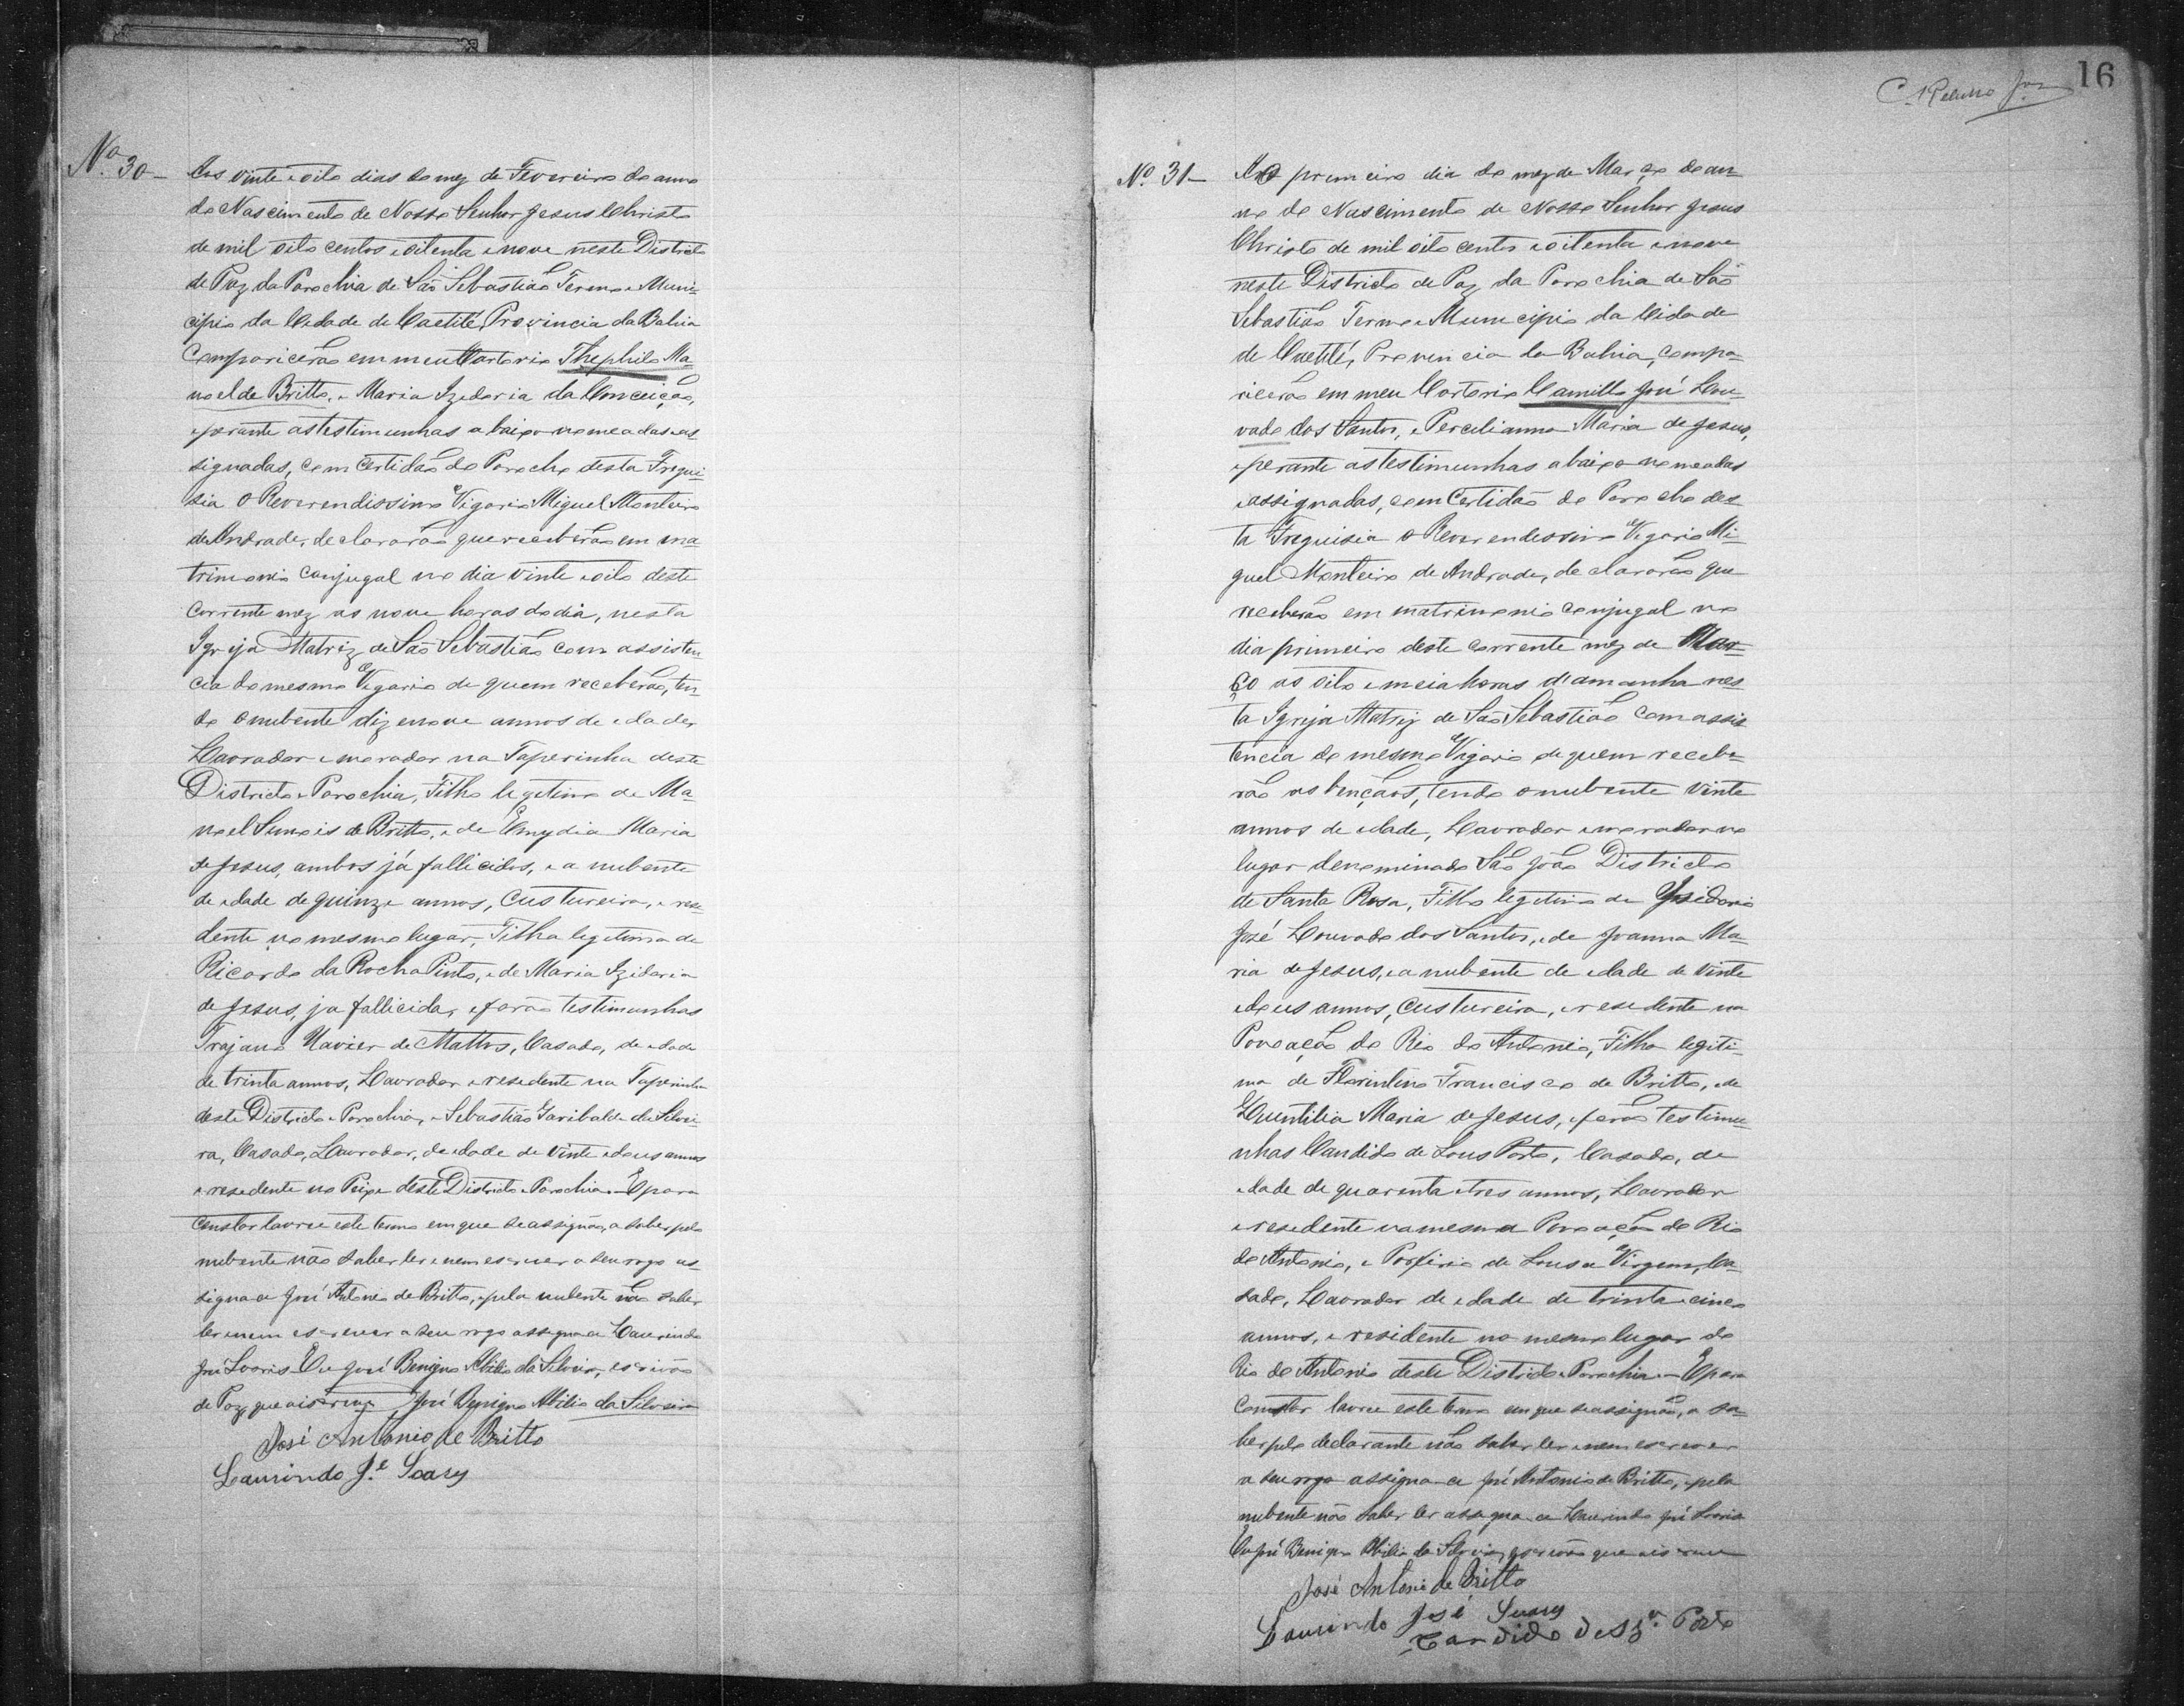 Nº 30 –
Aos vinte e oito dias do mez de Fevereiro do anno
do Nascimento de Nosso Senhor Jesus Christo
de mil oito centos e oitenta e nove neste Districto
de Paz da Parochia de São Sebastião Termo e Muni-
cipio da Cidade de Caetité, Provincia da Bahia
Comparicerão em meu Cartorio Thephilo Ma-
noel de Britto, e Maria Izidoria da Conceição,
e perante as testimunhas abaixo nomeadas e as
signadas, com Certidão do Parocho desta Fregui-
sia o Reverendissimo Vigario Miguel Monteiro
de Andrade, declararão que receberão em ma-
trimonio conjugal no dia vinte e oito deste
corrente mez as nove horas do dia, nesta
Igreja Matriz de São Sebastião com assisten-
cia do mesmo Vigario de quem receberão, ten-
do o nubente dizenove annos de idade,
Lavrador e morador na Taperinha deste
Districto e Parochia, Filho legitimo de Ma-
noel de Britto, e de Emydia Maria
de Jesus, ambos já fallicidos, e a nubente
de idade de quinze annos, Custureira, e resi-
dente no mesmo lugar, Filha legitima de
Ricardo da Rocha Pinto, e de Maria Izidoria
de Jesus, ja fallicida, e forão testimunhas
Trajano Xavier de Mattos, Casado, de idade
de trinta annos, Lavrador e residente na Taperinha
deste Districto e Parochia, e Sebastião Garibalde da Silvei-
ra, Casado, Lavrador, de idade de vinte e dous annos
e residente no Peixe deste Districto e Parochia. E para
constar lavrei este termo em que se assignão, a saber pelo
nubente não saber ler e nem escrever a seu rogo as-
signa-a José Antonio de Britto, e pela nubente não saber
ler e nem escrever a seu rogo assigna-a Laurindo
José Soares. Eu José Benigno Abilio da Silveira, escrivão
de Paz, que o iscrevy José Benigno Abilio da Silveira
José Antonio de Britto
Laurindo J.e Soares
16
Nº 31 –
Ao primeiro dia do mez de Março do an-
no do Nascimento de Nosso Senhor Jesus
Christo de mil oito centos e oitenta e nove
neste Districto de Paz da Parochia de São
Sebastião Termo e Municipio da Cidade
de Caetité, Provincia da Bahia, compa-
ricerão em meu Cartorio Camillo José Lou-
vado dos Santos, e Percilianna Maria de Jesus,
e perante as testimunhas abaixo nomeadas
e assignadas, com Certidão do Parocho des-
ta Freguisia o Reverendissimo Vigario Mi-
guel Monteiro de Andrade, declararão que
receberão em matrimonio conjugal no
dia primeiro deste corrente mez de Mar-
ço as oito e meia horas da manha nes-
ta Igreja Matriz de São Sebastião com assis
tencia do mesmo Vigario de quem recebe-
rão as bençaos, tendo o nubente vinte
annos de idade, Lavrador e morador no
lugar denominado São João Districto
de Santa Rosa, Filho legitimo de Isidorio
José Louvado dos Santos, e de Joanna Ma-
ria de Jesus, e a nubente de idade de vinte
e dous annos, custureira, e residente na
Povoação do Rio do Antonio, Filha legiti-
ma de Florintino Francisco de Britto, e de
Quintilia Maria de Jesus, e forão testimu-
nhas Candido de Sous Porto, Casado, de
idade de quarenta e tres annos, Lavrador
e residente na mesma Povoação do Rio
do Antonio, e Porfirio de Sousa Virgem, Ca-
sado, Lavrador de idade de trinta e cinco
annos, e residente no mesmo lugar do
Rio do Antonio deste Districto e Parochia. E para
constar lavrei este termo em que se assignão, a sa-
ber pelo declarante não saber ler e nem escrever
a seu rogo assigna-a José Antonio de Britto, e pela
nubente não saber ler assigna-a Laurindo José Soares
Eu José Benigno Abilio da Silveira, escrivão que o iscrevi
José Antonio de Britto
Laurindo José Soares
Candido de Sz.a Porto